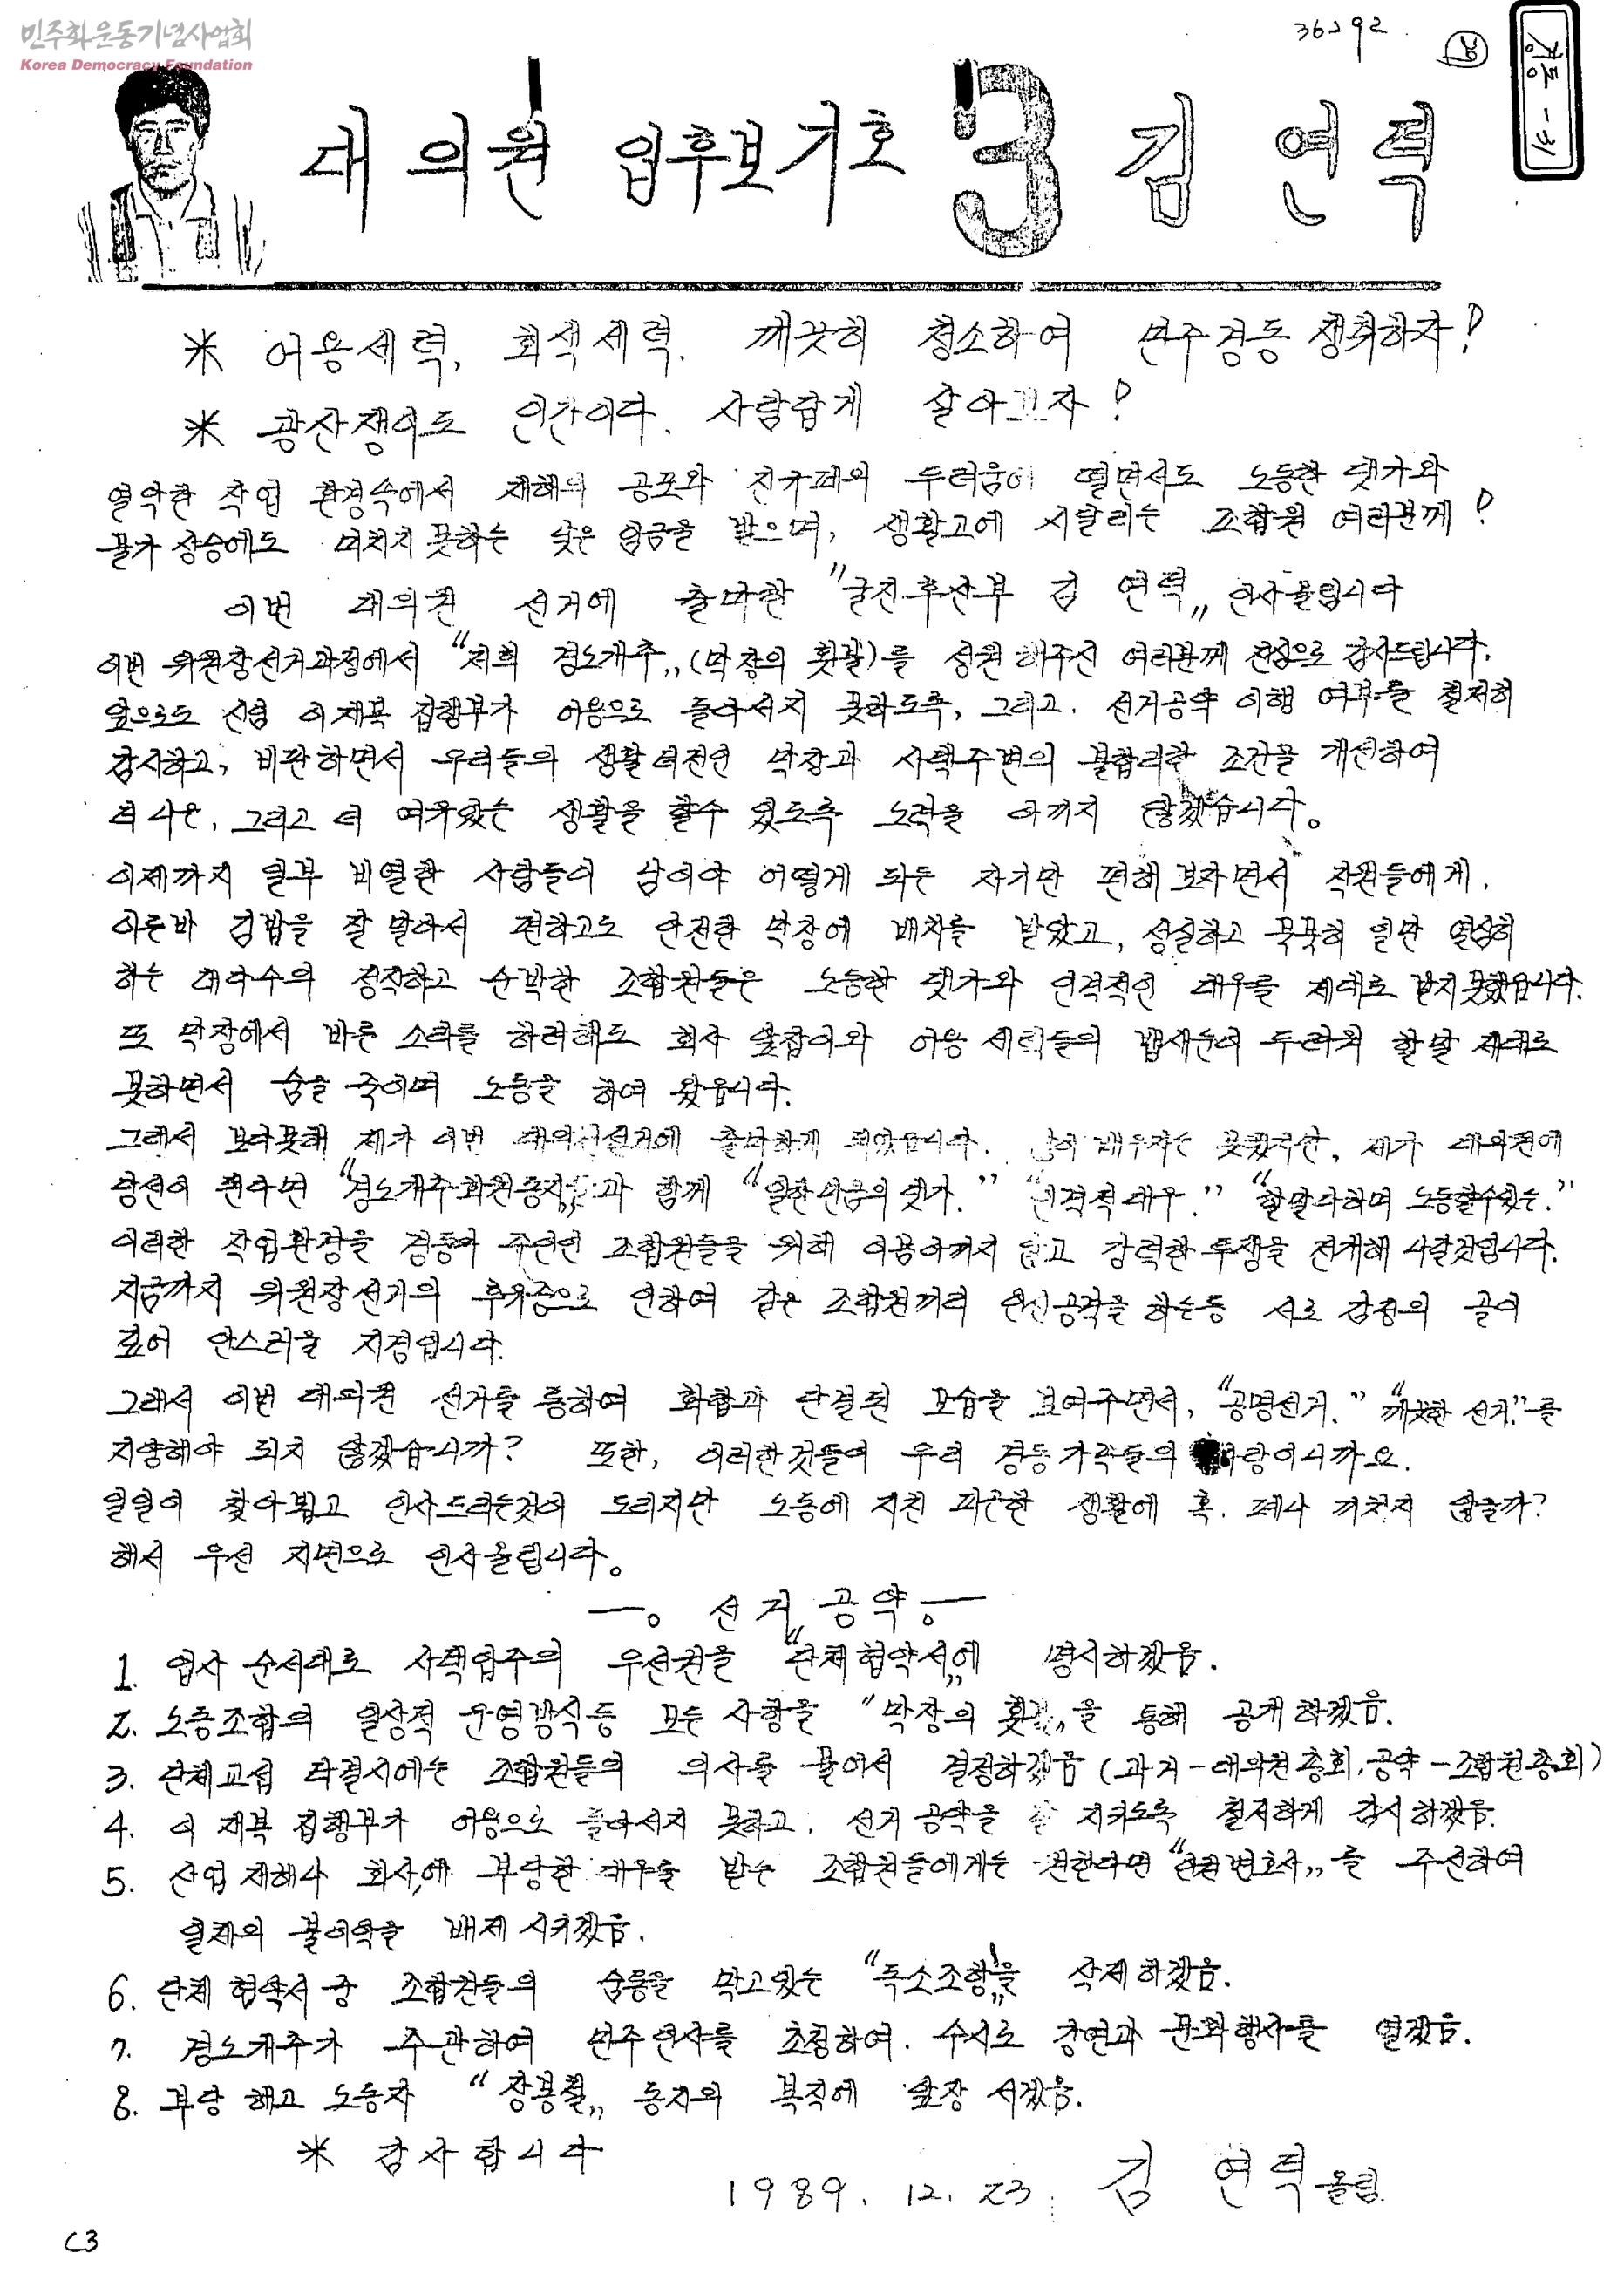 민주화운동기념사업회
Korea Democracy Foundation
36292
경동-31
대의원 입후보기호 3 김 연력
※ 어용세력, 회색세력. 깨끗히 청소하여 민주경동 쟁취하자!
※ 광산쟁이도 인간이다. 사람답게 살아보자!
열악한 작업 환경속에서 재해의 공포와 진규폐의 두려움에 떨면서도 노동한 댓가와
물가 상승에도 미치지 못하는 낮은 임금을 받으며, 생활고에 시달리는 조합원 여러분께!
이번 대의원 선거에 출마한 "굴진후산부 김 연력" 인사올립니다
이번 위원장선거과정에서 "저희 경노개추" (막장의 횃불)를 성원 해주신 여러분께 진심으로 감사드립니다.
앞으로도 신임 이재복 집행부가 어용으로 돌아서지 못하도록, 그리고. 선거공약 이행 여부를 철저히
감시하고, 비판하면서 우리들의 생활터전인 막장과 사택주변의 불합리한 조건을 개선하여
더 나은, 그리고 더 여유있는 생활을 할수 있도록 노력을 아끼지 않겠습니다.
이제까지 일부 비열한 사람들이 남이야 어떻게 되든 자기만 편해 보자면서 직원들에게.
이른바 김밥을 잘 말아서 편하고도 안전한 막장에 배치를 받았고, 성실하고 묵묵히 일만 열심히
하는 대다수의 정직하고 순박한 조합원들은 노동한 댓가와 인격적인 대우를 제대로 받지못했읍니다.
또 막장에서 바른 소리를 하려해도 회사 앞잡이와 어용 세력들의 밥새눈이 두려워 할말 제대로
못하면서 숨을 죽이며 노동을 하여 왔읍니다.
그래서 보다못해 제가 이번 대의원선거에 출마하게 되었읍니다. 많이 배우지는 못했지만, 제가 대의원에
당선이 된다면 "경노개추회원동지들"과 함께 "일한만큼의 댓가." "인격적대우." "할말다하며 노동할수있는."
이러한 작업환경을 경동의 주인인 조합원들을 위해 이몸아끼지 않고 강력한 투쟁을 전개해 나갈것입니다.
지금까지 위원장선거의 후유증으로 인하여 같은 조합원끼리 인신공격을 하는등 서로 감정의 골이
깊어 안스러울 지경입니다.
그래서 이번 대의원 선거를 통하여 화합과 단결된 모습을 보여주면서, "공명선거." "깨끗한 선거."를
지향해야 되지 않겠습니까? 또한, 이러한것들이 우리 경동가족들의 바람이니까요.
일일이 찾아뵙고 인사드리는것이 도리지만 노동에 지친 피곤한 생활에 혹. 폐나 끼치지 않을까?
해서 우선 지면으로 인사올립니다.
—o 선거 공약 o—
1. 입사 순서대로 사택입주의 우선권을 "단체협약서"에 명시하겠음.
2. 노동조합의 일상적 운영방식등 모든 사항을 "막장의 횃불"을 통해 공개하겠음.
3. 단체교섭 타결시에는 조합원들의 의사를 물어서 결정하겠음 (과거-대의원총회, 공약-조합원총회)
4. 이 재복 집행부가 어용으로 돌아서지 못하고, 선거 공약을 잘 지키도록 철저하게 감시하겠음.
5. 산업재해나 회사에 부당한 대우를 받는 조합원들에게는 원한다면 "인권변호사"를 주선하여
일체의 불이익을 배제 시키겠음.
6. 단체 협약서 중 조합원들의 숨통을 막고있는 "독소조항"을 삭제하겠음.
7. 경노개추가 주관하여 민주인사를 초청하여. 수시로 강연과 문화행사를 열겠음.
8. 부당 해고 노동자 "장봉철" 동지의 복직에 앞장 서겠음.
※ 감사합니다
1989. 12. 23. 김 연력 올림.
C3